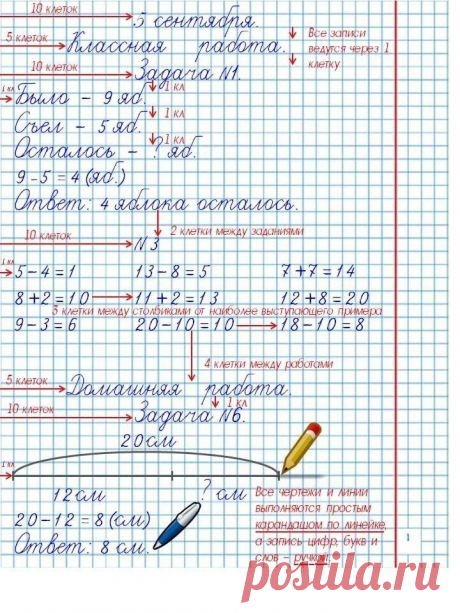 10 клеток
5 сентября.
5 клеток
Классная работа.
Все записи
ведутся через 1
клетку
10 клеток
Задача №1.
1 кл
Было – 9 яб.
1 кл
Съел – 5 яб.
1 кл
Осталось – ? яб.
1 кл
9 – 5 = 4 (яб.)
Ответ: 4 яблока осталось.
2 клетки между заданиями
10 клеток
№3
1 кл
5 – 4 = 1 13 – 8 = 5 7 + 7 = 14
8 + 2 = 10 11 + 2 = 13 12 + 8 = 20
3 клетки между столбиками от наиболее выступающего примера
9 – 3 = 6 20 – 10 = 10 18 – 10 = 8
4 клетки между работами
5 клеток
Домашняя работа.
1 кл
10 клеток
Задача №6.
20 см
1 кл
12 см ? см
Все чертежи и линии
выполняются простым
карандашом по линейке,
а запись цифр, букв и
слов – ручкой.
20 – 12 = 8 (см)
Ответ: 8 см.
1
posila.ru